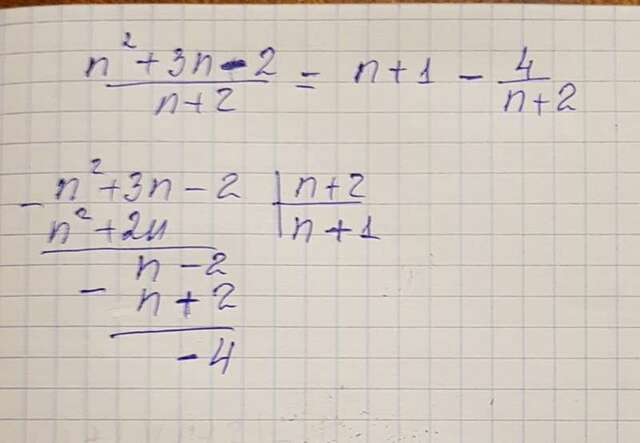 n² + 3n - 2 / n + 2 = n + 1 - 4 / n + 2
- n² + 3n - 2 | n + 2
n² + 2n | n + 1
n - 2
- n + 2
- 4